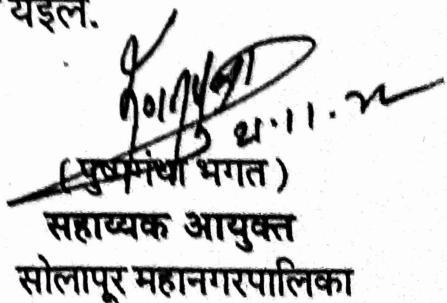 यइल.
(पुष्पगंधा भगत)
सहाय्यक आयुक्त
सोलापूर महानगरपालिका